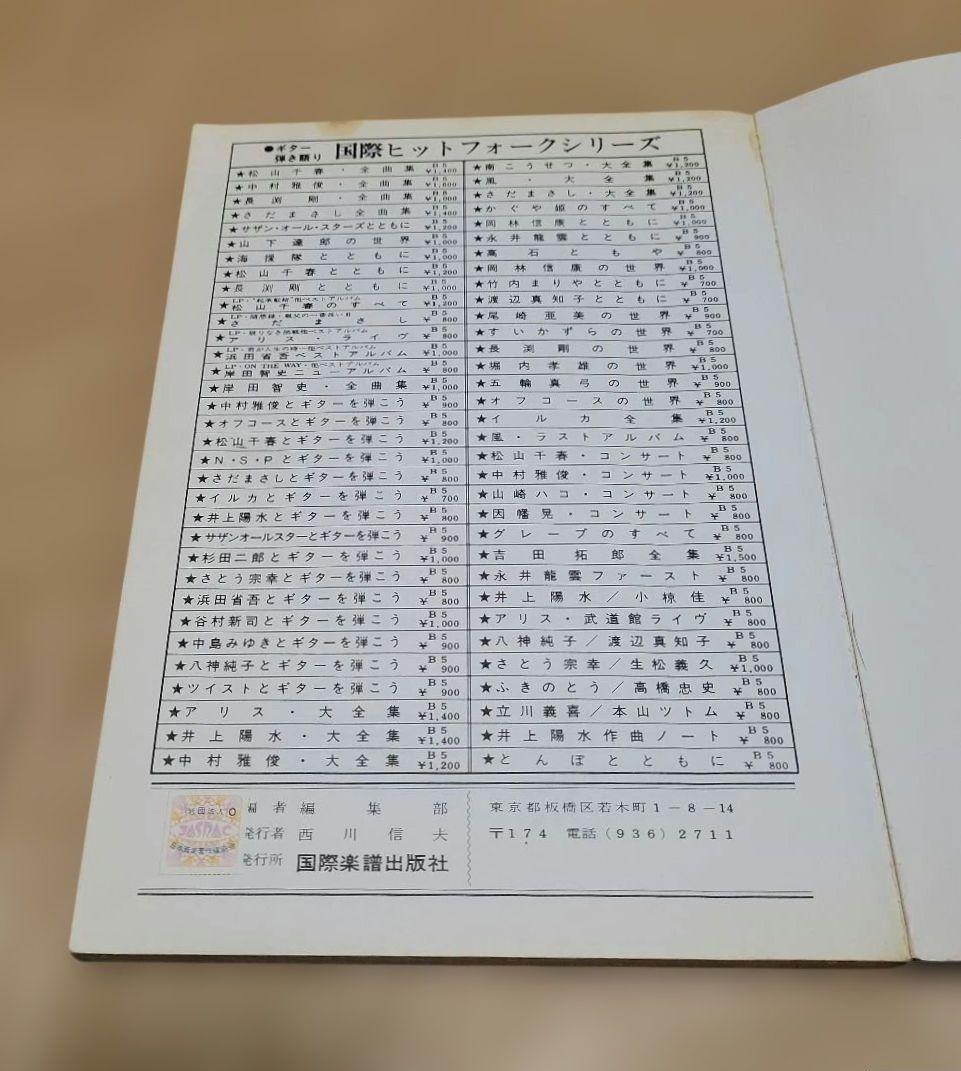 ●ギター弾き語り 国際ヒットフォークシリーズ
★松山千春・全曲集 B5 ¥1,400
★中村雅俊・全曲集 B5
★長渕剛・全曲集 B5 ¥1,000
★さだまさし全曲集 B5 ¥1,400
★サザン・オール・スターズとともに B5 ¥1,200
★山下達郎の世界 B5 ¥1,000
★海援隊とともに B5 ¥1,000
★松山千春とともに B5 ¥1,200
★長渕剛とともに B5 ¥1,000
LP・"起承転結"他ベストアルバム
★松山千春のすべて B5 ¥1,200
LP・随想録・親父の一番長い日
★さだまさし B5 ¥800
LP・限りなき挑戦他ベストアルバム
★アリス・ライヴ B5 ¥800
LP・君が人生の時…他ベストアルバム
★浜田省吾ベストアルバム B5 ¥1,000
LP・ON THE WAY・他ベストアルバム
★岸田智史ニューアルバム B5 ¥800
★岸田智史・全曲集 B5 ¥1,000
★中村雅俊とギターを弾こう B5 ¥900
★オフコースとギターを弾こう B5 ¥800
★松山千春とギターを弾こう B5 ¥1,200
★N・S・Pとギターを弾こう B5 ¥1,000
★さだまさしとギターを弾こう B5 ¥800
★イルカとギターを弾こう B5 ¥700
★井上陽水とギターを弾こう B5 ¥800
★サザンオールスターとギターを弾こう B5 ¥900
★杉田二郎とギターを弾こう B5 ¥1,000
★さとう宗幸とギターを弾こう B5 ¥800
★浜田省吾とギターを弾こう B5 ¥800
★谷村新司とギターを弾こう B5 ¥1,000
★中島みゆきとギターを弾こう B5 ¥900
★八神純子とギターを弾こう B5 ¥900
★ツイストとギターを弾こう B5 ¥900
★アリス・大全集 B5 ¥1,400
★井上陽水・大全集 B5 ¥1,400
★中村雅俊・大全集 B5 ¥1,200
★南こうせつ・大全集 B5 ¥1,200
★風・大全集 B5 ¥1,200
★さだまさし・大全集 B5 ¥1,200
★かぐや姫のすべて B5 ¥1,000
★岡林信康とともに B5 ¥1,000
★永井龍雲とともに B5 ¥900
★高石ともや B5 ¥800
★岡林信康の世界 B5 ¥1,000
★竹内まりやとともに B5 ¥700
★渡辺真知子とともに B5 ¥700
★尾崎亜美の世界 B5 ¥900
★すいかずらの世界 B5 ¥700
★長渕剛の世界 B5 ¥800
★堀内孝雄の世界 B5 ¥1,000
★五輪真弓の世界 B5 ¥900
★オフコースの世界 B5 ¥800
★イルカ全集 B5 ¥1,200
★風・ラストアルバム B5 ¥800
★松山千春・コンサート B5 ¥800
★中村雅俊・コンサート B5 ¥1,000
★山崎ハコ・コンサート B5 ¥800
★因幡晃・コンサート B5 ¥800
★グレープのすべて B5 ¥800
★吉田拓郎全集 B5 ¥1,500
★永井龍雲ファースト B5 ¥800
★井上陽水／小椋佳 B5 ¥800
★アリス・武道館ライヴ B5 ¥800
★八神純子／渡辺真知子 B5 ¥800
★さとう宗幸／生松義久 B5 ¥1,000
★ふきのとう／高橋忠史 B5 ¥800
★立川義喜／本山ツトム B5 ¥800
★井上陽水作曲ノート B5 ¥800
★とんぼとともに B5 ¥800
社団法人
JASRAC
日本音楽著作権協会
編者 編集部
発行者 西川信夫
発行所 国際楽譜出版社
東京都板橋区若木町1－8－14
〒174 電話(936)2711